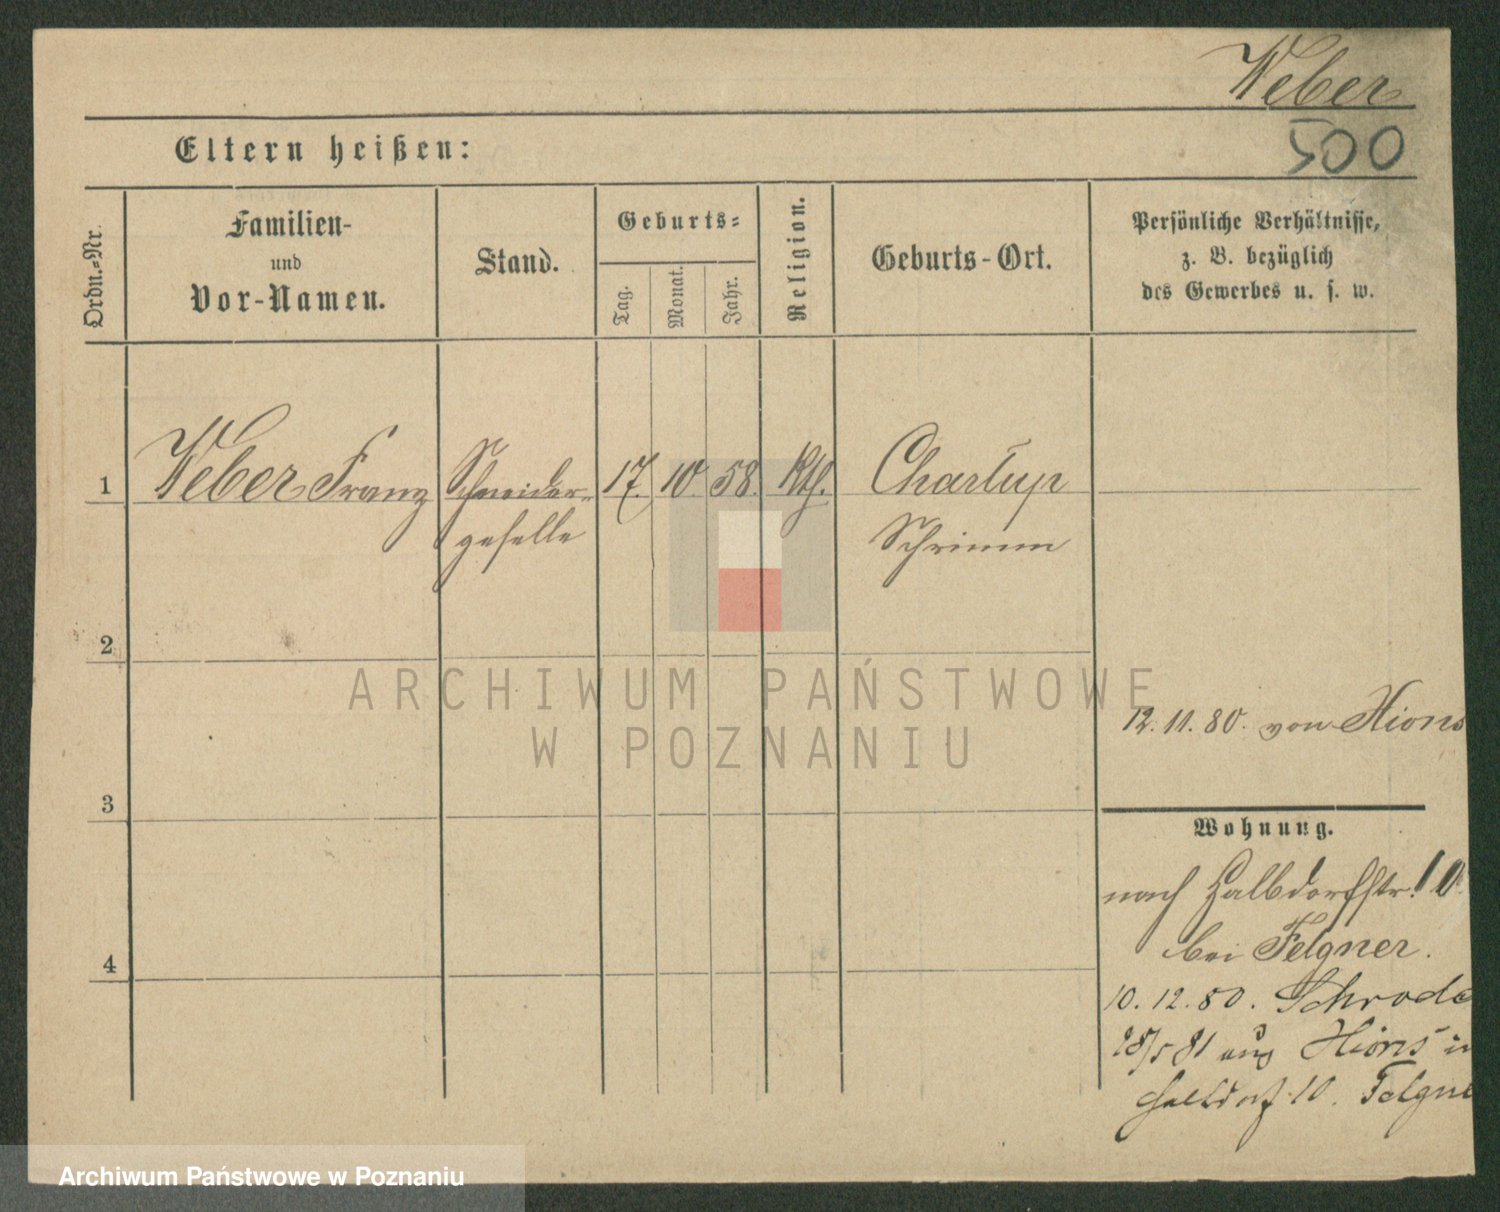 Weber
500
Eltern heißen:
Ordn.-Nr.
Familien-
und
Vor-Namen.
Stand.
Geburts-
Tag.
Monat.
Jahr.
Religion.
Geburts-Ort.
Persönliche Verhältnisse,
z. B. bezüglich
des Gewerbes u. s. w.
1 Weber Franz Schneider- 17. 10. 58. Kth. Charlup
geselle Schrimm
2
ARCHIWUM PAŃSTWOWE
W POZNANIU
12. 11. 80. von Xions
3
Wohnung.
nach Halbdorfstr. 10.
bei Felgner.
4
10. 12. 80. Schroda
28/5 81 aus Xions in
Halbdorf 10. Felgne
Archiwum Państwowe w Poznaniu